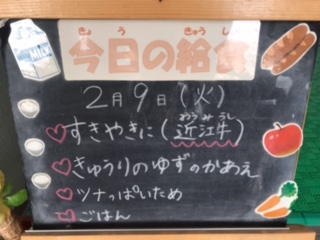 きょう きゅうしょく
今日の給食
2月9日(火)
おうみうし
♡すきやきに(近江牛)
♡きゅうりのゆずのかあえ
♡ツナっぱいため
♡ごはん
MILK